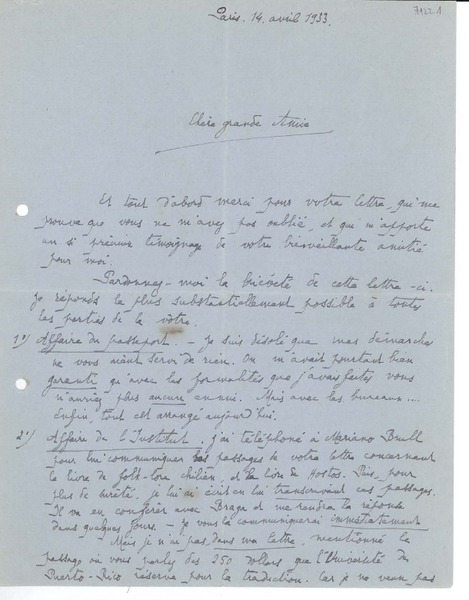 Paris. 14. avril 1933.
71221
Chère grande Amie
Et tout d'abord merci pour votre lettre, qui me
prouve que vous ne m'avez pas oublié, et qui m'apporte
un si précieux témoignage de votre bienveillante amitié
pour moi.
Pardonnez-moi la brièveté de cette lettre-ci.
Je réponds le plus substantiellement possible à toutes
les parties de la vôtre.
1°) Affaire du passeport. — Je suis désolé que mes démarches
ne vous aient servi de rien. On m'avait pourtant bien
garanti qu'avec les formalités que j'avais faites vous
n'auriez plus aucun ennui. Mais avec les bureaux....
Enfin, tout est arrangé aujourd'hui.
2°) Affaire de l'Institut. J'ai téléphoné à Mariano Brull
pour lui communiquer les passages de votre lettre concernant
le livre de folk-lore chilien, et le livre de Hostos. Puis, pour
plus de sûreté, je lui ai écrit en lui transcrivant ces passages.
Il va en conférer avec Braga et me rendra la réponse
dans quelques jours. — Je vous la communiquerai immédiatement
Mais je n'ai pas, dans ma lettre, mentionné le
passage où vous parlez des 250 dollars que l'Université de
Puerto-Rico réserve pour la traduction. Car je ne veux pas